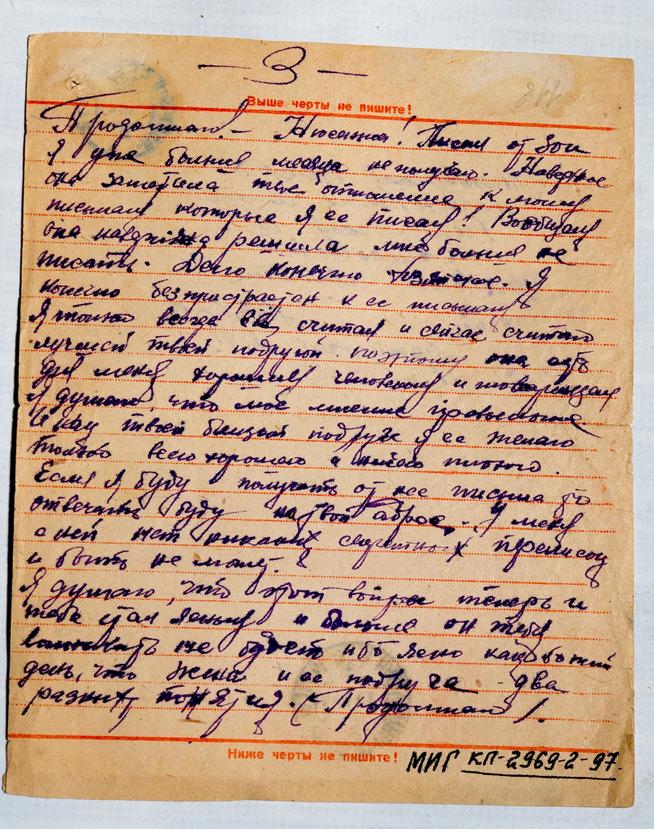 — 3 —
Выше черты не пишите!
Продолжаю! — Нюсенька! Писем от Зои
я уже больше месяца не получаю. Наверное
она заметила твое отношение к моим
письмам которые я ее писал! Вообщем
она наверняка решила мне больше не
писать. Дело конечно хозяйское. Я
конечно безпристрастен к ее письмам
Я только всегда её считал и сейчас считаю
лучшей твоей подругой поэтому она есть
для меня хорошим человеком и товарищем
Я думаю, что мое мнение правильное
и как твоей близкой подруге я ее желаю
только всего хорошего и ничего плохого.
Если я буду получать от нее письма то
отвечать буду на твой адрес. У меня
с ней нет никаких секретных переписок
и быть не может.
Я думаю, что этот вопрос теперь и
тебе стал ясным и больше он тебя
не будет ибо ясно как божий
день, что жена и ее подруга - два
разных понятия. (Продолжаю).
Ниже черты не пишите!
МИГ КП-2969-2-97.